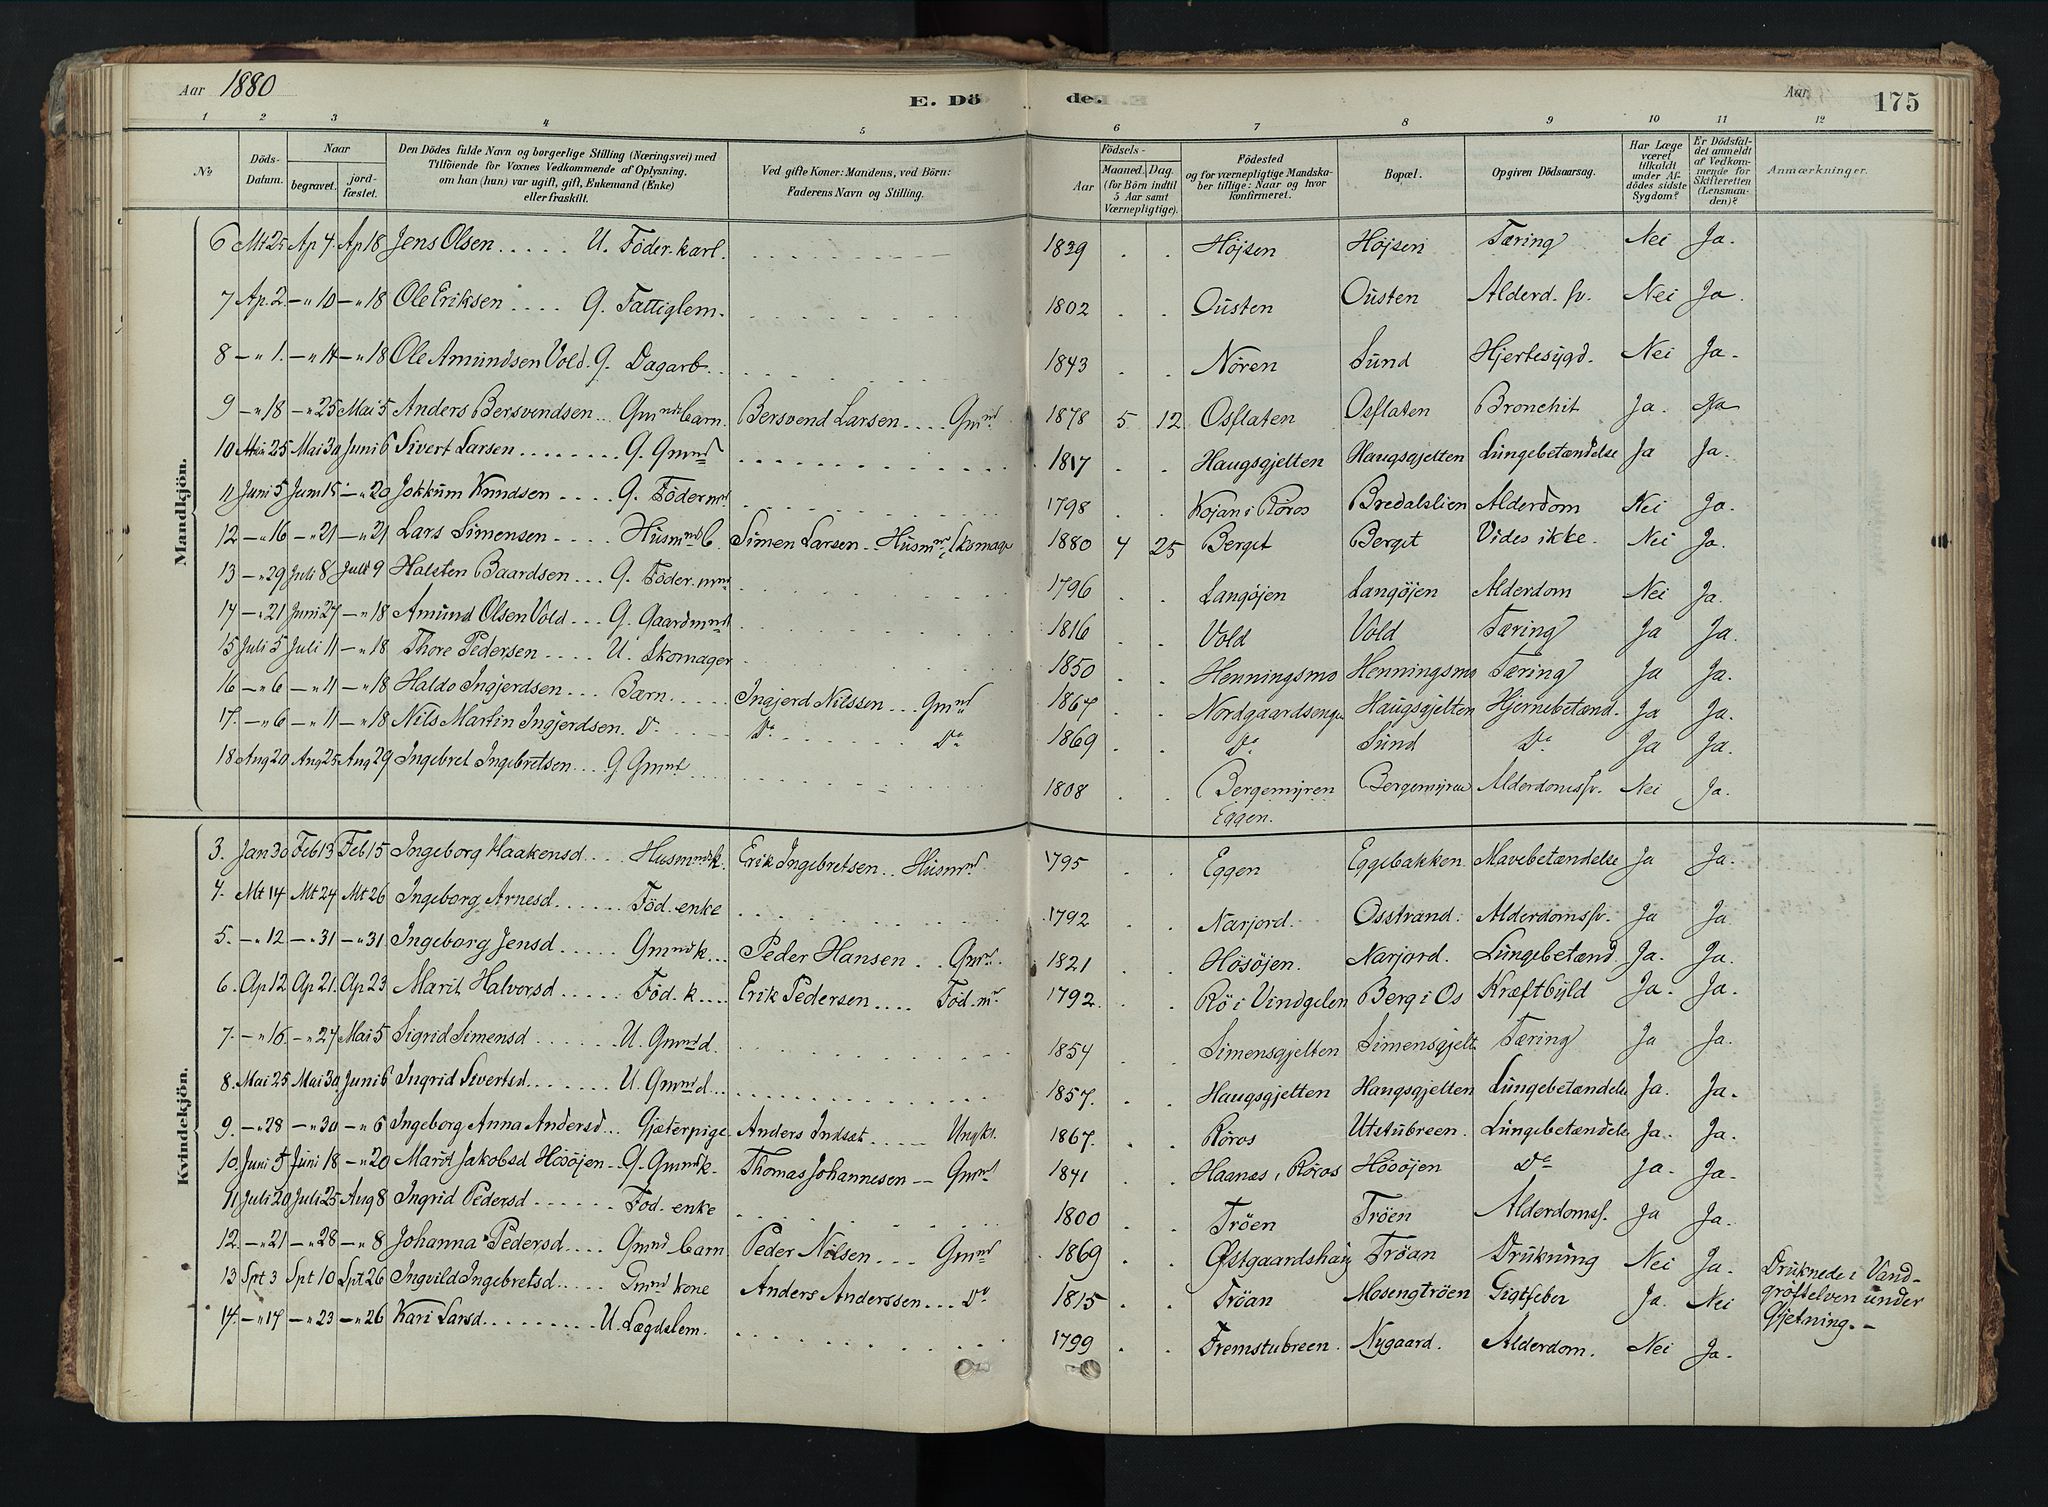 Aar 1880
E. Döde.
Aar
175
1 2 3 4 5 6 7 8 9 10 11 12
№
Döds-Datum.
Naar
begravet.
jord-fæstet.
Den Dödes fulde Navn og borgerlige Stilling (Næringsvei) med
Tilföiende for Voxnes Vedkommende af Oplysning,
om han (hun) var ugift, gift, Enkemand (Enke)
eller fraskilt.
Ved gifte Koner: Mandens, ved Börn:
Faderens Navn og Stilling.
Födsels-
Aar
Maaned. Dag.
(for Börn indtil
5 Aar samt
Værnepligtige).
Födested
og for værnepligtige Mandska-
ber tillige: Naar og hvor
konfirmeret.
Bopæl.
Opgiven Dödsaarsag.
Har Læge
været
tilkaldt
under Af-
dödes sidste
Sygdom?
Er Dödsfal-
det anmeldt
af Vedkom-
mende for
Skifteretten
(Lensman-
den)?
Anmærkninger.
Mandkjön.
6 Mt 25 Ap 4. Ap 18 Jens Olsen ..... U. Föder-karl. 1839 . . Højsen Højsen Tæring Nei Ja.
7 Ap. 2. — " 10 — " 18 Ole Eriksen .... G. Fattiglem. 1802 . . Ousten Ousten Alderd. sv. Nei Ja.
8 — " 1. — " 11 — " 18 Ole Amundsen Vold. G. Dagarb. 1843 . . Nören Sund Hjertesygd. Nei Ja.
9 — " 18 — " 25 Mai 5 Anders Bersvendsen... Gmnds barn. Bersvend Larsen .... Gmnd 1878 5 12 Osflaten Osflaten Bronchit Ja. Ja
10 Mai 25 Mai 30 Juni 6 Sivert Larsen ........ G. Gmnd 1817 . . Haugsgjelten Haugsgjelten Lungebetændelse Ja Ja.
11 Juni 5 Juni 15 — " 20 Jokkum Knudsen .... G. Födermnd 1798 . . Kojan i Röros Bredalslien Alderdom Nei Ja.
12 — " 16 — " 21 — " 21 Lars Simensen .... Husmnds b. Simen Larsen - Husmnd, Skomage 1880 4 25 Berget Berget Vides ikke. Nei Ja.
13 — " 29 Juli 8 Juli 9 Halsten Baardsen ... G. Föder.mnd 1796 . . Langøjen Langøjen Alderdom Nei Ja.
14 — " 21 Juni 27 — " 18 Amund Olsen Vold ... G. Gaardmnd 1816 . . Vold Vold Tæring Ja Ja.
15 Juli 5 Juli 11 — " 18 Thore Pedersen .... U. Skomager 1850 . . Henningsmo Henningsmo Tæring Ja Ja.
16 — " 6 — " 11 — " 18 Haldo Ingjerdsen ... Barn..... Ingjerd Nilssen ... Gmnd 1867 . . Nordgaardsenga Haugsgjelten Hjernebetænd. Ja Ja.
17. — " 6 — " 11 — " 18 Nils Martin Ingjerdsen. Do Do Do 1869 . . Do Sund Do Ja Ja.
18 Aug 20 Aug 25 Aug 29 Ingebret Ingebretsen ... G Gmnd 1808 . . Bergemyren Eggen. Bergemyren Alderdomssv. Nei Ja.
Kvindekjön.
3. Jan 30 Feb 13 Feb 15 Ingeborg Haakensd .... Husmnds k. Erik Ingebretsen .. Husmnd 1795 . . Eggen Eggebakken. Mavebetændelse Ja Ja.
4. Mt 14 Mt 24 Mt 26 Ingeborg Arnesd ...... Föd. enke 1792 . . Narjord. Osstrand. Alderdomssv. Ja Ja
5. — " 12 — " 31 — " 31 Ingeborg Jensd ..... Gmnds k... Peder Hansen .. Gmnd. 1821 . . Hösöjen. Narjord. Lungebetænd. Ja. Ja.
6. Ap 12 Ap 21. Ap 23 Marit Halvorsd ..... Föd. k .... Erik Pedersen .... Föd. mnd 1792. . . Rö i Vindgelen Berg i Os Kræftbyld Ja. Ja.
7. — " 16. — " 27 Mai 5 Sigrid Simensd ..... U. Gmnd d. 1854 . . Simensgjelten Simensgjelt. Tæring Ja Ja.
8. Mai 25 Mai 30 Juni 6 Ingrid Sivertsd ....... U. Gmnd d... 1857. . . Haugsgjelten Haugsgjelten Lungebetændelse Ja. Ja.
9. — " 28 — " 30 — " 6 Ingeborg Anna Andersd ... Gjæterpige Anders Indsæt ..... Ungk. 1867. . . Röros Utstubreen. Lungebetændelse Ja. Ja.
10. Juni 5 Juni 18 — " 20 Marit Jakobsd Hösöjen - G. Gmnds k. Thomas Johannesen — Gmnd 1841 . . Haanæs, Röros Hösöjen Do Ja. Ja.
11 Juli 20 Juli 25 Aug 8 Ingrid Pedersd ...... Föd. enke 1800 . . Tröen Tröen Alderdomss. Ja Ja.
12. — " 21 — " 28 — " 8 Johanna Pedersd .... Gmnds barn Peder Nilsen ... Gmnd 1869 . . Østgaardshaug Tröan Drukning Nei Ja. Druknede i Vand-
gröftelven under
Gjetning. —
13 Spt 3 Spt 10 Spt 26 Ingvild Ingebretsd ..... Gmnds kone Anders Anderssen ... Do 1815 . . Tröan Mosengtröen Gigtfeber Ja. Nei
14. — " 17 — " 23 — " 26 Kari Larsd ......... U. Lægdslem. 1799 . . Fremstubreen. Nygaard. Alderdom. Nei Ja.